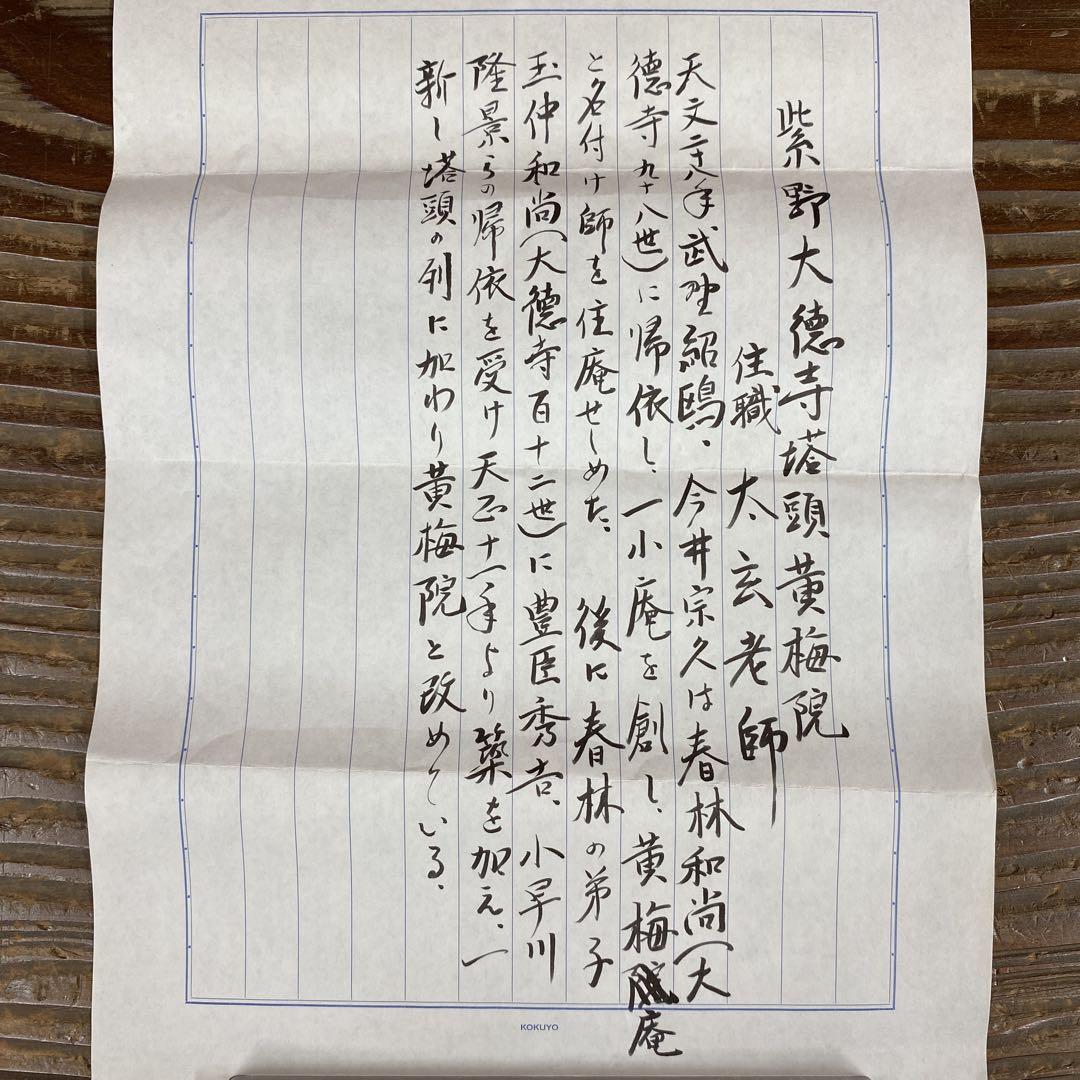 紫野大徳寺塔頭黄梅院
住職 太玄老師
天文二十八年武野紹鴎、今井宗久は春林和尚(大
徳寺九十八世)に帰依し、一小庵を創し、黄梅庵
と名付け師を住庵せしめた、後に春林の弟子
玉仲和尚(大徳寺百十二世)に豊臣秀吉、小早川
隆景らの帰依を受け天正十一年より築を加え、一
新し塔頭の列に加わり黄梅院と改めている、
KOKUYO